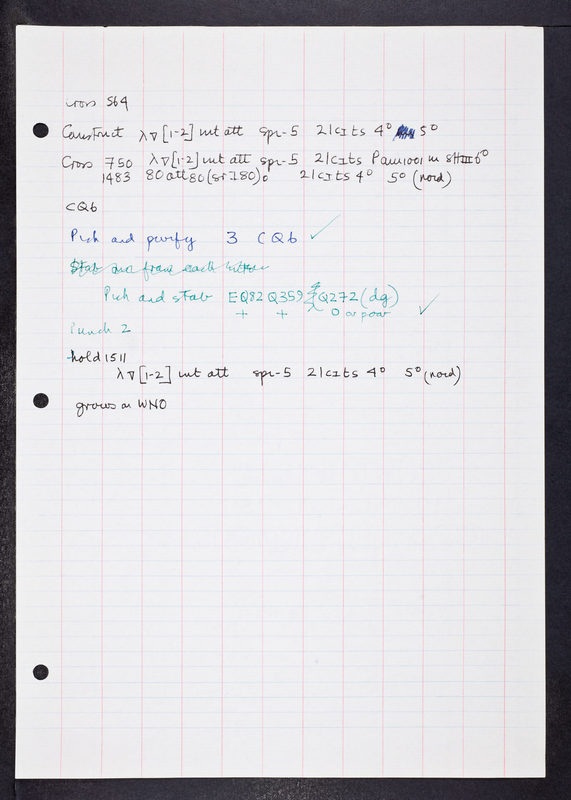 Cross 564
Construct λ∇[1-2] int att spi-5 21cIts 4° 5°
Cross 750 λ∇[1-2] int att spi-5 21cIts Pam1001 m sHIII6°
1483 80att80(srI80)0 21cIts 4° 5° (nord)
CQ6
Pick and purify 3 CQ6 ✓
Stab one from each
Pick and stab EQ82 Q359 Q272 (dg) ✓
+ + 0 or poor
Punch 2
hold 1511
λ∇[1-2] int att spi-5 21cIts 4° 5° (nord)
grows on WNO